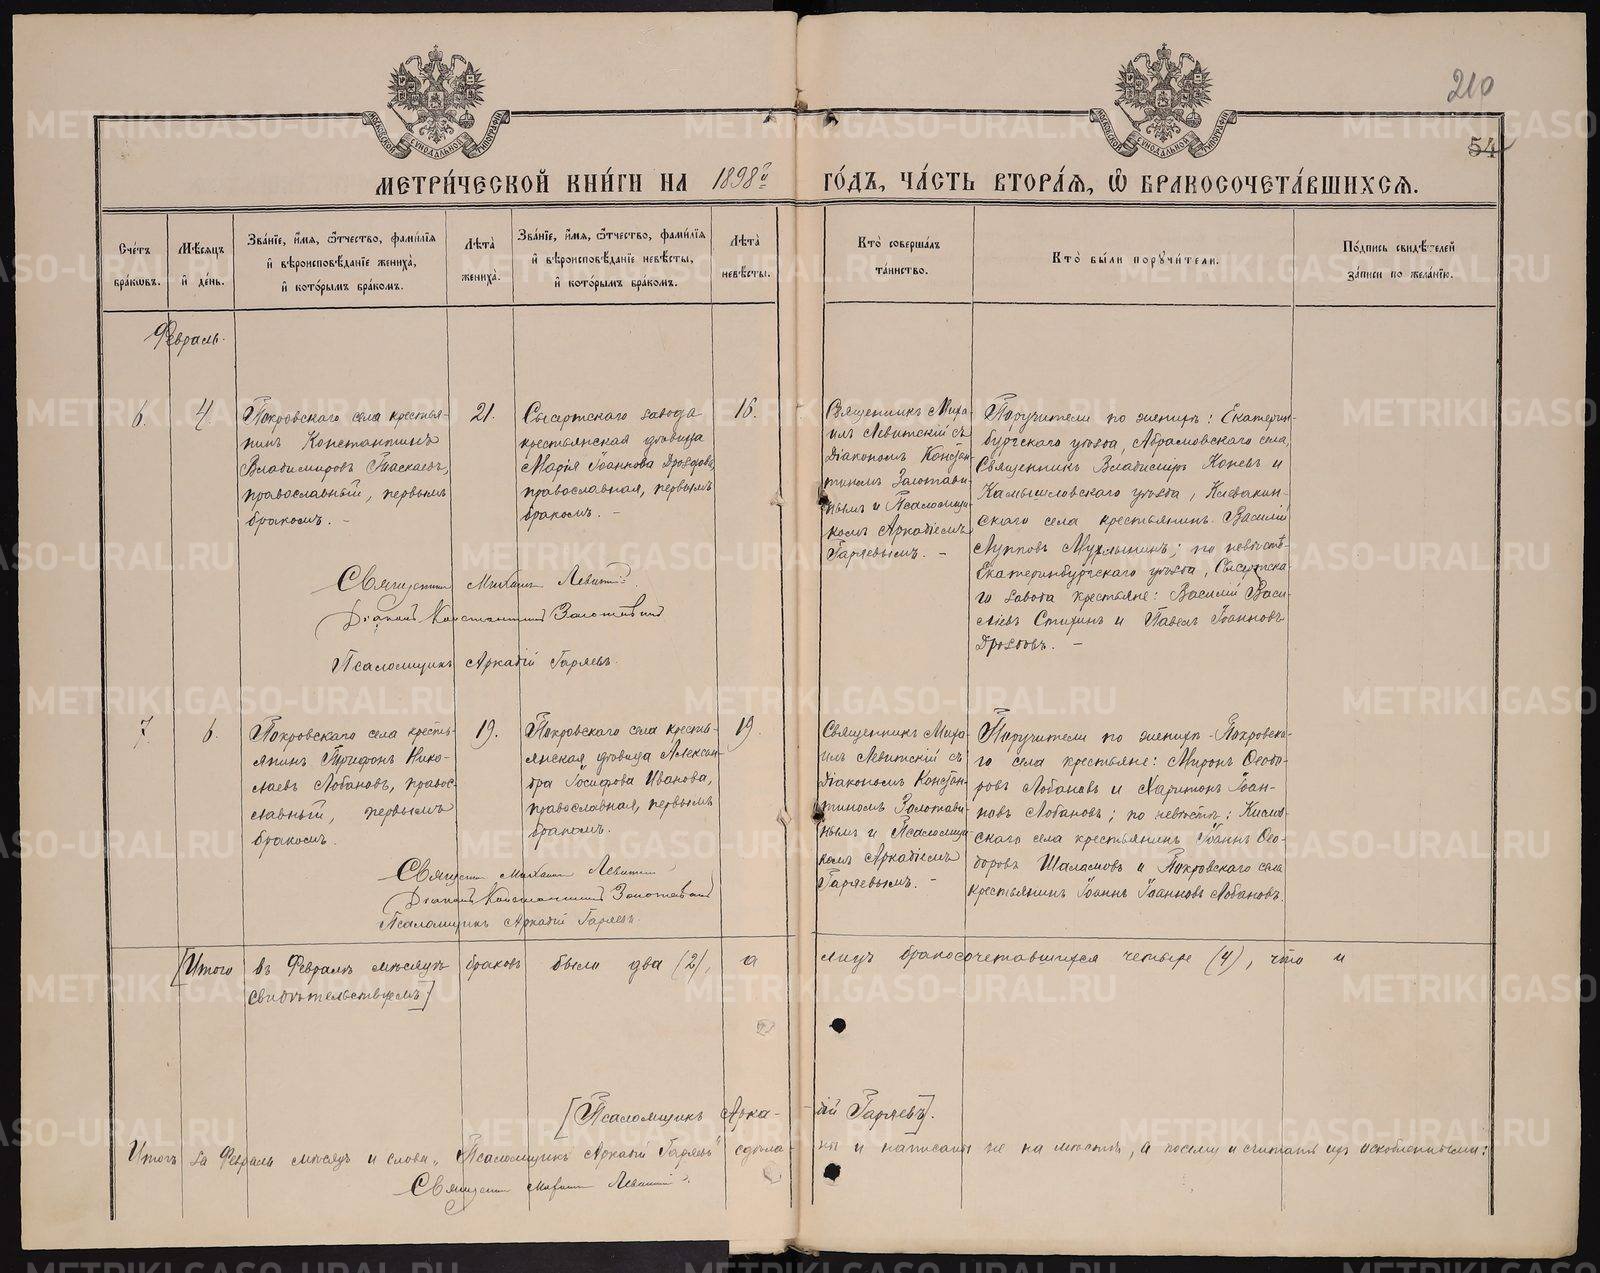 210
54
МЕТРИ́ЧЕСКОЙ КНИ́ГИ НА 1898й ГО́ДЪ, ЧА́СТЬ ВТОРА́Я, Ѽ БРАКОСОЧЕТА́ВШИХСЯ.
Сче́тъ бра́кѡвъ.
Мѣ́сяцъ и҆ де́нь.
Зва́нїе, и҆́мя, ѻ҆́тчество, фами́лїя
и҆ вѣроисповѣ́данїе жениха̀,
и҆ кото́рымъ бра́комъ.
Лѣ́та жениха̀.
Зва́нїе, и҆́мя, ѻ҆́тчество, фами́лїя
и҆ вѣроисповѣ́данїе невѣ́сты,
и҆ кото́рымъ бра́комъ.
Лѣ́та невѣ́сты.
Кто̀ соверша́лъ
та́инство.
Кто̀ бы́ли порꙋчи́тели.
По́дпись свидѣ́телей
за́писи по жела́нїю.
Февраль.
6.
4.
Покровскаго села крестья-
нинъ Константинъ
Владимировъ Таскаевъ,
православный, первымъ
бракомъ. -
21.
Сысертскаго завода
крестьянская дѣвица
Марія Іоаннова Дроздова,
православная, первымъ
бракомъ. -
16.
Священникъ Миха-
илъ Левитскій съ
Діакономъ Констан-
тиномъ Золотави-
нымъ и Псаломщи-
комъ Аркадіемъ
Гаряевымъ. -
Поручители по женихѣ: Екатерин-
бургскаго уѣзда, Абрамовскаго села,
Священникъ Владиміръ Коневъ и
Камышловскаго уѣзда, Клевакин-
скаго села крестьянинъ Василій
Лупповъ Мухлынинъ; по невѣстѣ-
Екатеринбургскаго уѣзда, Сысертска-
го завода крестьяне: Василій Васи-
ліевъ Стихинъ и Павелъ Іоанновъ
Дроздовъ. -
Священникъ Михаилъ Левитскій.
Діаконъ Константинъ Золотавинъ
Псаломщикъ Аркадій Гаряевъ.
7.
6.
Покровскаго села кресть-
янинъ Трифонъ Нико-
лаевъ Лобановъ, правос-
лавный, первымъ
бракомъ.
19.
Покровскаго села кресть-
янская дѣвица Алексан-
дра Іосифова Иванова,
православная, первымъ
бракомъ.
19.
Священникъ Миха-
илъ Левитскій съ
Діакономъ Констан-
тиномъ Золотави-
нымъ и Псаломщи-
комъ Аркадіемъ
Гаряевымъ. -
Поручители по женихѣ - Покровска-
го села крестьяне: Миронъ Ѳеодо-
ровъ Лобановъ и Харитонъ Іоан-
новъ Лобановъ; по невѣстѣ: Кисло-
скаго села крестьянинъ Іоаннъ Ѳео-
доровъ Шаламовъ и Покровскаго села
крестьянинъ Іоаннъ Іоанновъ Лобановъ.
Священ. Михаилъ Левитскій
Діаконъ Константинъ Золотавинъ
Псаломщикъ Аркадій Гаряевъ.
[Итого въ Февралѣ мѣсяцѣ браковъ было два (2), а лицъ бракосочетавшихся четыре (4), что и
свидѣтельствуемъ]
[Псаломщикъ Аркадій Гаряевъ].
Итогъ за Февраль мѣсяцъ и слова „Псаломщикъ Аркадій Гаряевъ" сдѣланы и написаны не на мѣстѣ, а посему и считать ихъ оскобленными:
Священникъ Михаилъ Левитскій.